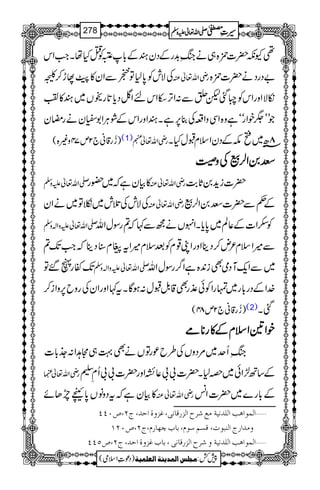 سیرتِ مصطفی صلی اللہ تعالیٰ علیہ وسلم 278
تھی کیونکہ حضرت حمزہ نے جنگِ بدر کے دن ہند کے باپ عُتبہ کو قتل کیا تھا۔ بس اس
بے درد نے حضرت حمزہ رضی اللہ تعالیٰ عنہ کی لاش کو پایا تو خنجر سے ان کا پیٹ پھاڑ کر کلیجہ
نکالا اور اس کو چبا گئی لیکن حلق سے نہ اترا اس لئے اگل دیا تاریخوں میں ہند کا لقب
جو ”جگر خوار“ ہے وہ اسی واقعہ کی بنا پر ہے۔ ہند اور اس کے شوہر ابوسفیان نے رمضان
۸ ھ میں فتح مکہ کے دن اسلام قبول کیا۔ رضی اللہ تعالیٰ عنہم (1) (زرقانی ج۲ ص۴۷ وغیرہ)
سعد بن الربیع کی وصیت
حضرت زید بن ثابت رضی اللہ تعالیٰ عنہ کا بیان ہے کہ میں حضور صلی اللہ تعالیٰ علیہ وسلم
کے حکم سے حضرت سعد بن الربیع رضی اللہ تعالیٰ عنہ کی لاش کی تلاش میں نکلا تو میں نے ان
کو سکرات کے عالم میں پایا۔ انہوں نے مجھ سے کہا کہ تم رسول اللہ صلی اللہ تعالیٰ علیہ والہ وسلم
سے میرا سلام عرض کر دینا اور اپنی قوم کو بعد سلام میرا یہ پیغام سنا دینا کہ جب تک تم
میں سے ایک آدمی بھی زندہ ہے اگر رسول اللہ صلی اللہ تعالیٰ علیہ والہ وسلم تک کفار پہنچ گئے تو
خدا کے دربار میں تمہارا کوئی عذر بھی قابل قبول نہ ہوگا۔ یہ کہا اور ان کی روح پرواز کر
گئی۔ (2) (زرقانی ج۲ ص۴۸)
خواتین اسلام کے کارنامے
جنگِ اُحد میں مردوں کی طرح عورتوں نے بھی بہت ہی مجاہدانہ جذبات
کے ساتھ لڑائی میں حصہ لیا۔ حضرت بی بی عائشہ اور حضرت بی بی اُم سلیم رضی اللہ تعالیٰ عنہما
کے بارے میں حضرت انس رضی اللہ تعالیٰ عنہ کا بیان ہے کہ یہ دونوں پائینچے چڑھائے
المواهب اللدنية مع شرح الزرقانی، غزوة احد، ج٢، ص٤٤٠
ومدارج النبوت، قسم سوم، باب چهارم، ج٢، ص١٢٠
المواهب اللدنية و شرح الزرقانی، باب غزوة احد، ج٢، ص٤٤٥
پیش کش: مجلس المدینة العلمیة (دعوتِ اسلامی)